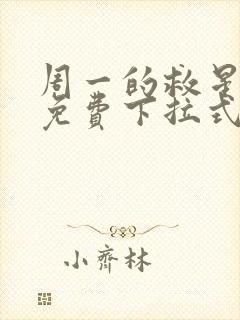 周一的救星
免费下拉式
小齐林